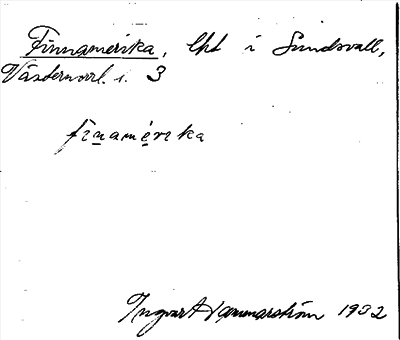 Finnamerika, lht i Sundsvall,
Västernorrl. l. 3
finamérika
Ingvart Hammarström 1932